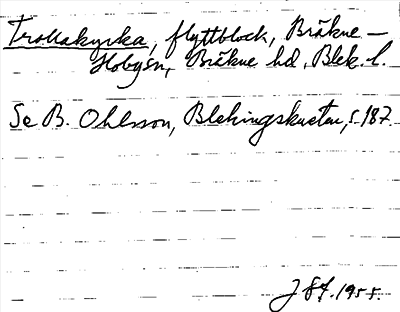 Trollakyrka, flyttblock, Bräkne-
Hobysn, Bräkne hd, Blek. l.
Se B. Ohlsson, Blekingskusten, s. 187.
1955.